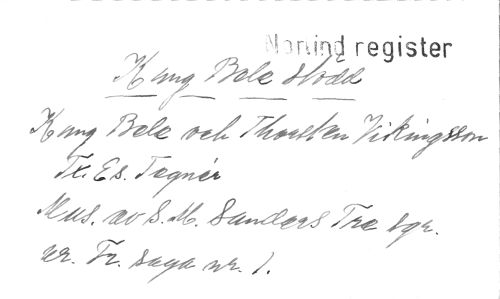 Nonind register
Kung Bele stodd
Kung Bele och Thorsten Vikingsson
Tx. Es. Tegnér
Mus. av S. M. Sanders Tre sgr.
ur. Fr. saga nr. 1.